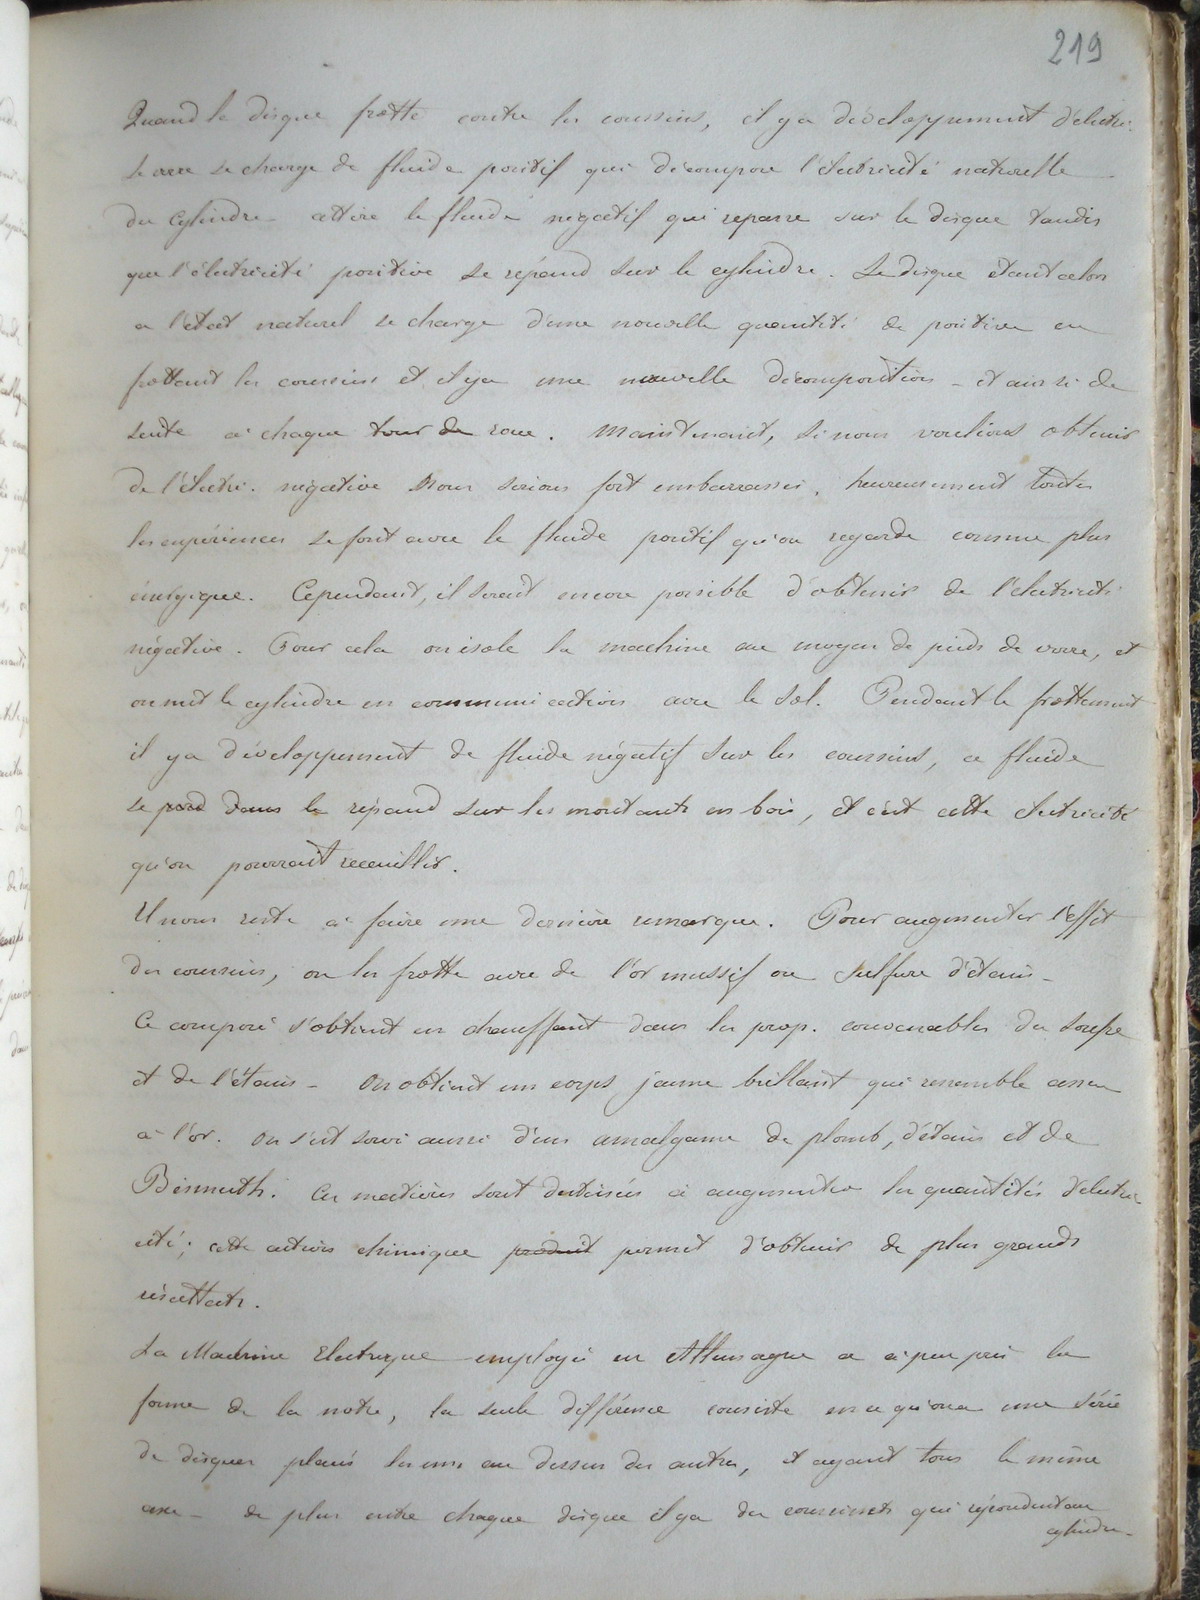 219
Quand le disque frotte contre les coussins, il y a développement d'électri.
Le verre se charge de fluide positif qui décompose l'électricité naturelle
du cylindre - attire le fluide négatif qui repasse sur le disque tandis
que l'électricité positive se répand sur le cylindre. Le disque étant alors
a l'état naturel se charge d'une nouvelle quantité de positive en
frottant les coussins et il y a une nouvelle décomposition - et ainsi de
suite à chaque tour de roue. Maintenant, si nous voulions obtenir
de l'électri. négative nous serions fort embarrassés, heureusement toutes
les expériences se font avec le fluide positif qu'on regarde comme plus
énergique. Cependant, il serait encore possible d'obtenir de l'électricité
négative. Pour cela on isole la machine au moyen de pieds de verre, et
on met le cylindre en communication avec le sol. Pendant le frottement
il y a développement de fluide négatif sur les coussins, ce fluide
se perd dans le répand sur les montants en bois, et c'est cette électricité
qu'on pourrait recueillir.
Il nous reste à faire une dernière remarque. Pour augmenter l'effet
des coussins, on les frotte avec de l'or mussif ou sulfure d'étain -
Ce composé s'obtient en chauffant dans les prop. convenables du soufre
et de l'étain - On obtient un corps jaune brillant qui ressemble assez
à l'or. On s'est servi aussi d'un amalgame de plomb, d'étain et de
Bismuth. Ces matières sont destinées à augmenter les quantités d'électri-
cité; cette action chimique produit permet d'obtenir de plus grands
résultats.
La Machine Electrique employée en Allemagne a à peu près la
forme de la notre, la seule différence consiste en ce qu'on a une série
de disques placés les uns au dessus des autres, et ayant tous le même
axe - de plus entre chaque disque il y a des coussinets qui répondent au
cylindre -